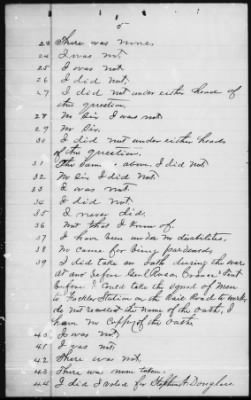 5
23 There was none
24 I was not
25 I was not
26 I did not,
27 I did not under either heads of
the question
28 No Sir I was not
29 No Sir.
30 I did not under either heads
of the question.
31 The Same above. I did not
32 No Sir I did not
33 I was not
34 I did not
35 I never did.
36 Not that I know of.
37 I have been under no disabilities.
38 No came for being pardoned
39 I did take an oath during the war
at and before Genl
before I could take the squad of men
to Station on the Rail Road to work,
do not recollect the name of the oath, I
have no Coppy of the oath
40 I was not,
41 I was not
42 There was not
43 There was none taken.
44 I did I voted for Stephen A Douglass